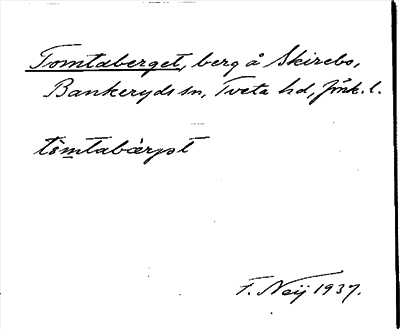 Tomtaberget, berg å Skirebo,
Bankeryds sn, Tveta hd, Jönk. l.
F. Neij 1937.